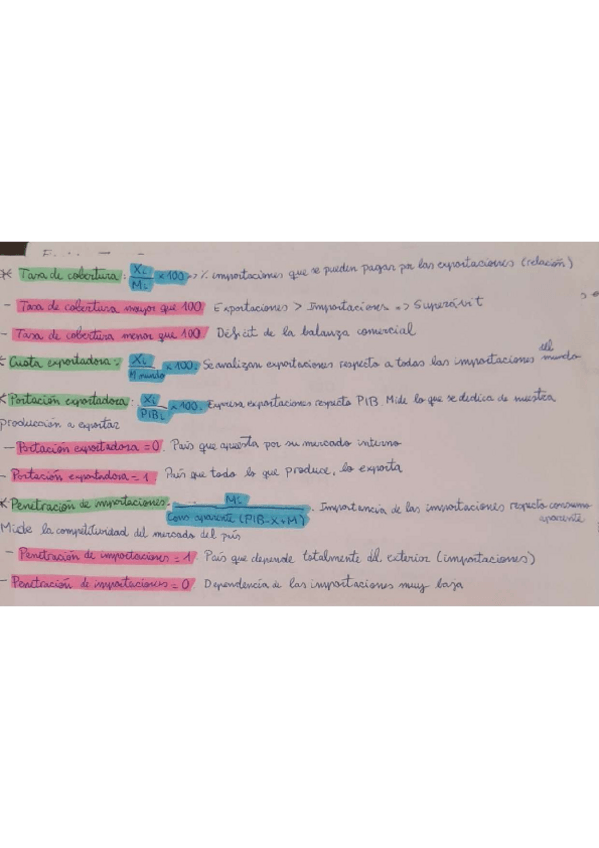 * Tasa de cobertura: XL / ML x 100 => % importaciones que se pueden pagar por las exportaciones (relación)
- Tasa de cobertura mayor que 100 Exportaciones > Importaciones => Superávit
- Tasa de cobertura menor que 100 Déficit de la balanza comercial
* Cuota exportadora = XL / M mundo x 100. Se analizan exportaciones respecto a todas las importaciones del mundo
* Portación exportadora: XL / PIBL x 100. Expresa exportaciones respecto PIB. Mide lo que se dedica de nuestra
producción a exportar
- Portación exportadora = 0. País que apuesta por su mercado interno
- Portación exportadora = 1 País que todo lo que produce, lo exporta
* Penetración de importaciones: ML / Cons aparente (PIB-X+M). Importancia de las importaciones respecto consumo aparente
Mide la competitividad del mercado del país
- Penetración de importaciones = 1 País que depende totalmente del exterior (importaciones)
- Penetración de importaciones = 0 Dependencia de las importaciones muy baja